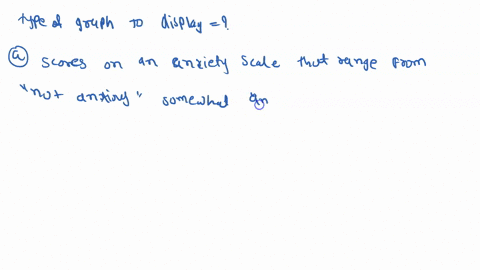 type of graph to display = ?
(a) scores on an anxiety scale that range from
"not anxious" somewhat an